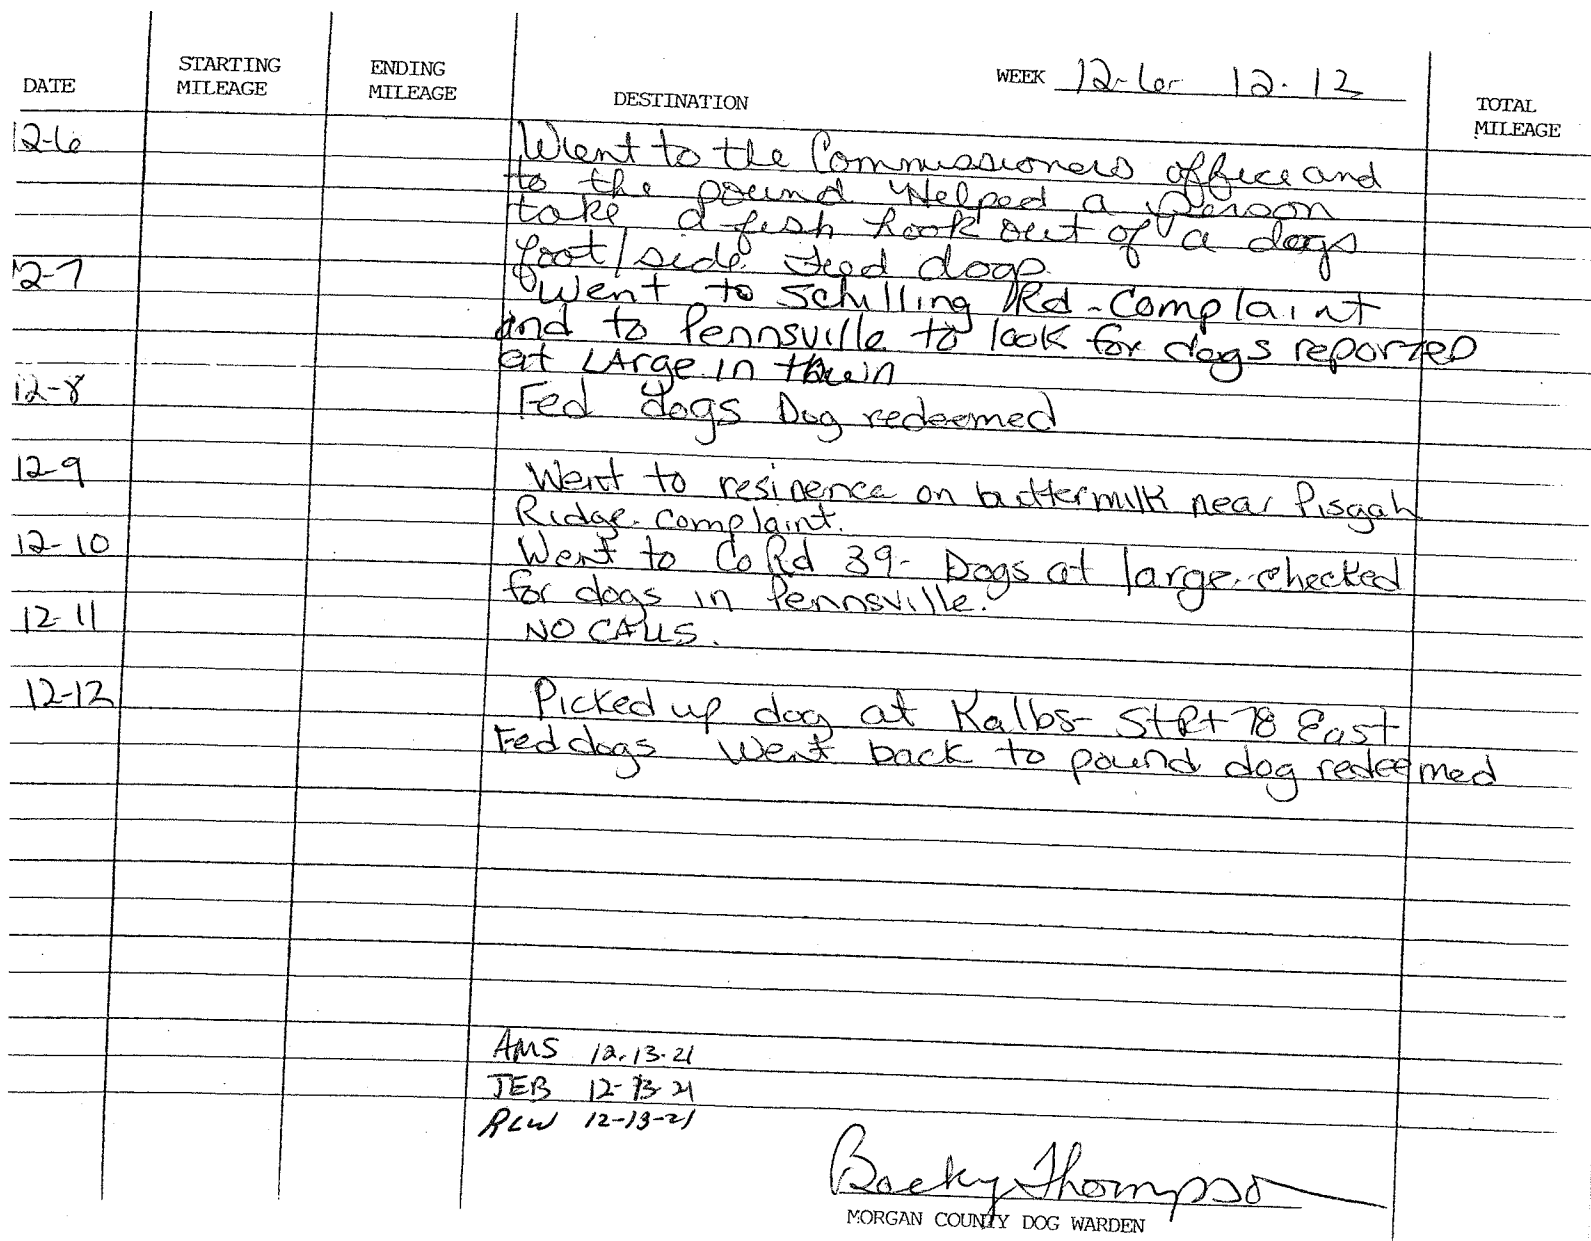 DATE STARTING MILEAGE ENDING MILEAGE DESTINATION WEEK 12-6- 12-12 TOTAL MILEAGE
12-6 Went to the Commissioners office and
to the pound Helped a person
take a fish hook out of a dogs
foot/side. Feed dogs.
12-7 Went to Schilling Rd - Complaint
and to Pennsville to look for dogs reported
at LArge in town
12-8 Fed dogs Dog redeemed
12-9 Went to resinence on buttermilk near Pisgah
Ridge. complaint.
12-10 Went to Co Rd 39- Dogs at large. checked
for dogs in Pennsville.
12-11 NO CALLS.
12-12 Picked up dog at Kalbs- St Rt 78 East
Fed dogs Went back to pound dog redeemed
AMS 12.13.21
JEB 12-13-21
RLW 12-13-21
Becky Thompson
MORGAN COUNTY DOG WARDEN